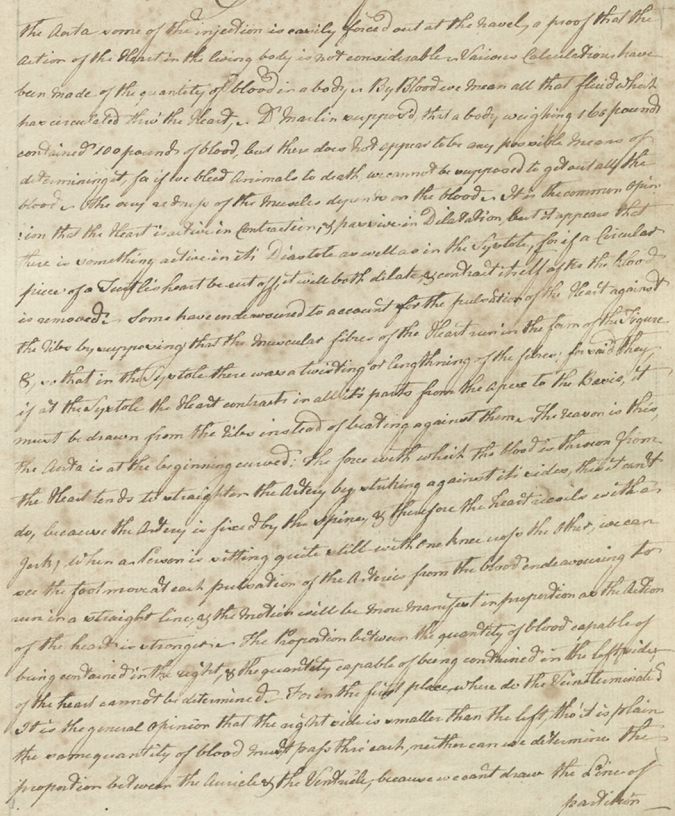 the Aorta some of the injection is easily forced out at the Navel, a proof that the
Action of the Heart in the living body is not considerable. Various Calculations have
been made of the quantity of blood in a body. By Blood we mean all that fluid which
has circulated thro' the Heart. Dr. Martin suppos'd, that a body weighing 160 pounds
contained 100 pounds of blood, but there does not appear to be any possible means of
determining it, for if we bleed Animals to death we cannot be supposed to get out all the
blood. The very redness of the Muscles depends on the blood. It is the common Opin:
:ion that the Heart is active in Contraction, & passive in Dilatation, but it appears that
there is something active in it's Diastole as well as in the Systole, for if a Circular
piece of a Turtle's heart be cut off it will both dilate & contract itself after the blood
is removed. Some have endeavoured to account for the pulsation of the Heart against
the Ribs by supposing that the Muscular fibres of the Heart run in the form of the Figure
8, & that in the Systole there was a twisting or lengthning of the fibres, for said they
if at the Systole the Heart contracts in all it's parts from the Apex to the Basis, it
must be drawn from the Ribs instead of beating against them. The reason is this,
the Aorta is at the beginning curved: the force with which the blood is thrown from
the Heart tends to straighten the Artery by striking against it's sides, this it can't
do, because the Artery is fixed by the Spine, & therefore the heart recoils with a
Jerk; when a Person is sitting quite still with one knee cross the Other, we can
see the foot move at each pulsation of the Arteries from the blood endeavouring to
run in a straight line, & the motion will be more manifest in proportion as the Action
of the heart is stronger. The Proportion between the quantity of blood capable of
being contained in the right, & the quantity capable of being contained in the left side
of the heart cannot be determined. For in the first place, where do the Veins terminate?
It is the general Opinion that the right side is smaller than the left, tho' it is plain
the same quantity of blood must pass thro' each, neither can we determine the
proportion between the Auricle & the Ventricle, because we cant draw the Line of
partition